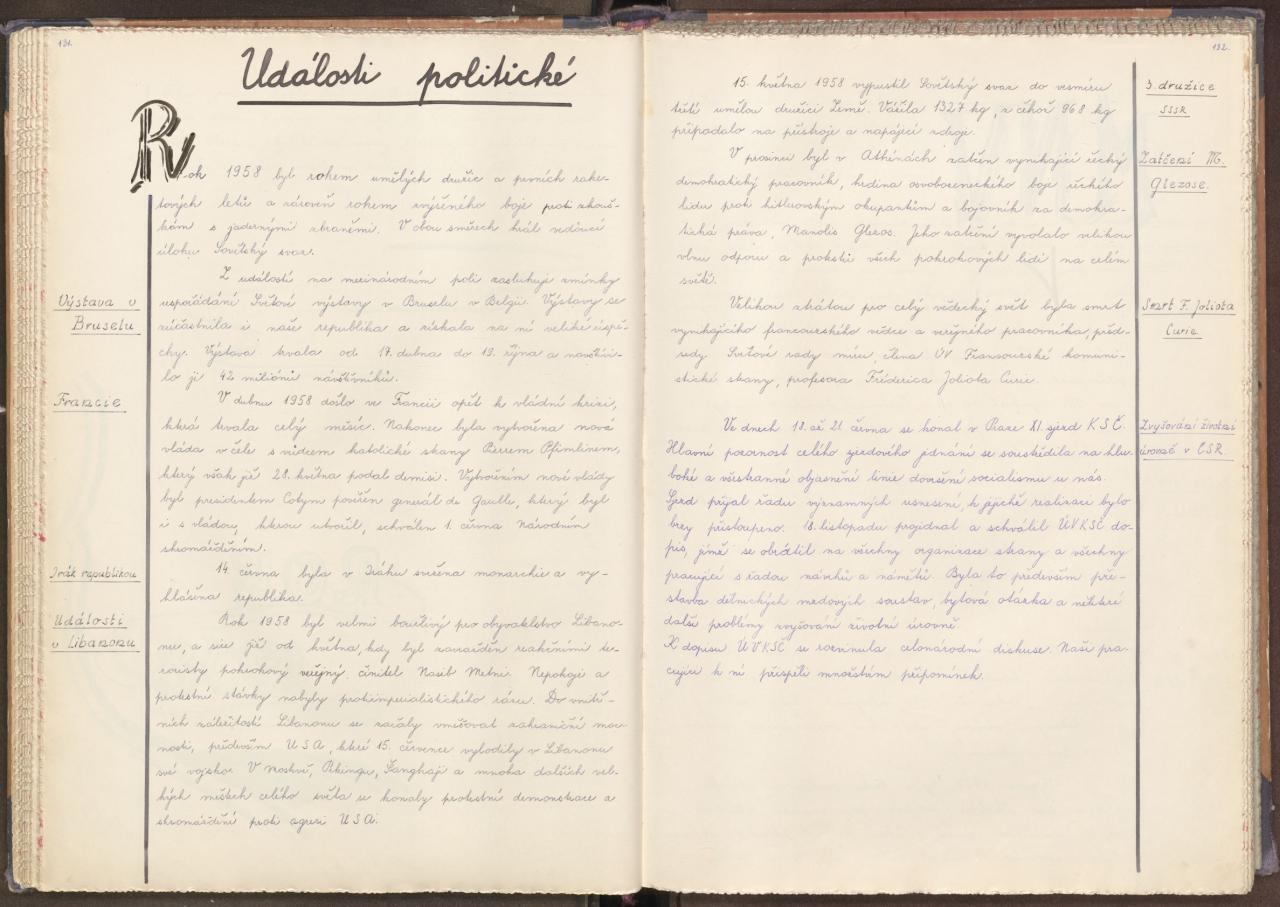 131.
Události politické
Rok 1958 byl rokem umělých družic a prvních rake-
tových letů a zároveň rokem zvýšeného boje proti zkouš-
kám s jadernými zbraněmi. V obou směrech hrál vedoucí
úlohu Sovětský svaz.
Výstava v
Bruselu
Z událostí na mezinárodním poli zasluhuje zmínky
uspořádání Světové výstavy v Bruselu v Belgii. Výstavy se
zúčastnila i naše republika a získala na ní veliké úspě-
chy. Výstava trvala od 17. dubna do 19. října a navštívi-
lo ji 42 miliónů návštěvníků.
Francie
V dubnu 1958 došlo ve Francii opět k vládní krizi,
která trvala celý měsíc. Nakonec byla vytvořena nová
vláda v čele s vůdcem katolické strany Pierrem Pfimlinem,
který však již 28. května podal demisi. Vytvořením nové vlády
byl presidentem Cotym pověřen generál de Gaulle, který byl
i s vládou, kterou utvořil, schválen 1. června Národním
shromážděním.
Irák republikou
14. června byla v Iráku svržena monarchie a vy-
hlášena republika.
Události
v Libanonu
Rok 1958 byl velmi bouřlivý pro obyvatelstvo Libano-
nu, a sice již od května, kdy byl zavražděn reakčními te-
roristy pokrokový veřejný činitel Nasib Metni. Nepokoje a
protestní stávky nabyly protiimperialistického rázu. Do vnitř-
ních záležitostí Libanonu se začaly vměšovat zahraniční moc-
nosti, především USA, které 15. července vylodily v Libanonu
své vojsko. V Moskvě, Pekingu, Šanghaji a mnoha dalších vel-
kých městech celého světa se konaly protestní demonstrace a
shromáždění proti agresi USA.
132.
3. družice
SSSR
15. května 1958 vypustil Sovětský svaz do vesmíru
třetí umělou družici Země. Vážila 1327 kg, z čehož 968 kg
připadalo na přístroje a napájecí zdroje.
Zatčení M.
Glezose.
V prosinci byl v Athénách zatčen vynikající řecký
demokratický pracovník, hrdina osvobozeneckého boje řeckého
lidu proti hitlerovským okupantům a bojovník za demokra-
tická práva, Manolis Glezos. Jeho zatčení vyvolalo velikou
vlnu odporu a protestů všech pokrokových lidí na celém
světě.
Smrt F. Joliota
Curie
Velikou ztrátou pro celý vědecký svět byla smrt
vynikajícího francouzského vědce a veřejného pracovníka, před-
sedy Světové rady míru, člena ÚV Francouzské komuni-
stické strany, profesora Fréderica Joliota Curie.
Zvyšování životní
úrovně v ČSR.
Ve dnech 18. až 21. června se konal v Praze XI. sjezd KSČ.
Hlavní pozornost celého sjezdového jednání se soustředila na hlu-
boké a všestranné objasnění linie dovršení socialismu u nás.
Sjezd přijal řadu významných usnesení, k jejichž realizaci bylo
brzy přistoupeno. 18. listopadu projednal a schválil ÚV KSČ do-
pis, jímž se obrátil na všechny organizace strany a všechny
pracující s řadou návrhů a námětů. Byla to především pře-
stavba dělnických mzdových soustav, bytová otázka a některé
další problémy zvyšování životní úrovně.
K dopisu ÚV KSČ se rozvinula celonárodní diskuse. Naši pra-
cující k ní přispěli množstvím připomínek.